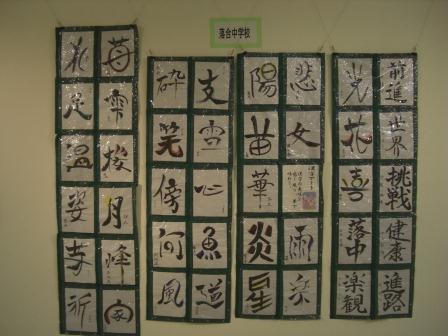 落合中学校
前進
世界
挑戦
健康
進路
光
花
喜
落中
楽観
悲
女
雨
楽
陽
苗
華
炎
星
支
雪
心
魚
道
砕
笑
傍
何
風
苺
雫
桜
月
峰
家
花
足
温
姿
寺
祈